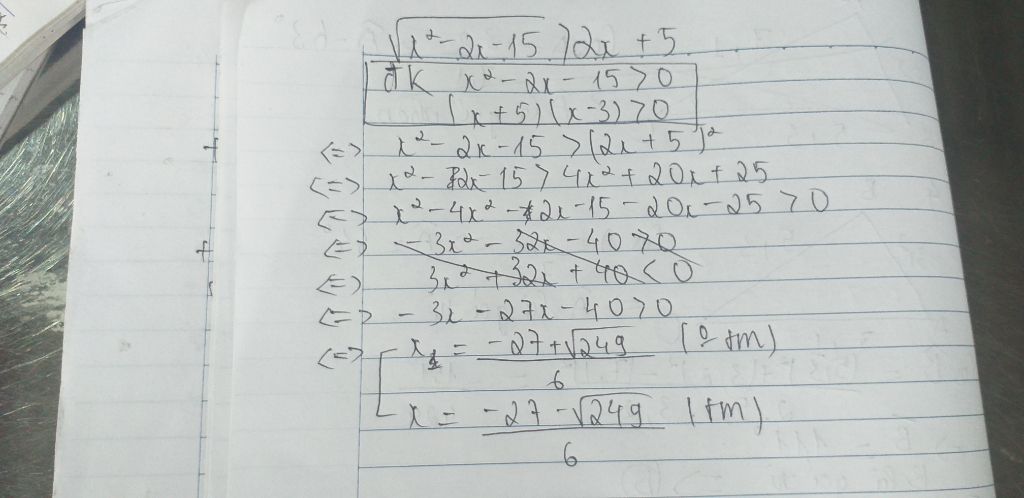 √(x² - 2x - 15) > 2x + 5
đK x² - 2x - 15 > 0
(x + 5)(x - 3) > 0
<=> x² - 2x - 15 > (2x + 5)²
<=> x² - 2x - 15 > 4x² + 20x + 25
<=> x² - 4x² - 2x - 15 - 20x - 25 > 0
<=> - 3x² - 32x - 40 > 0
<=> 3x² + 32x + 40 < 0
<=> - 3x - 27x - 40 > 0
<=> x₁ = (-27 + √249) / 6 (º tm)
x = (-27 - √249) / 6 (tm)